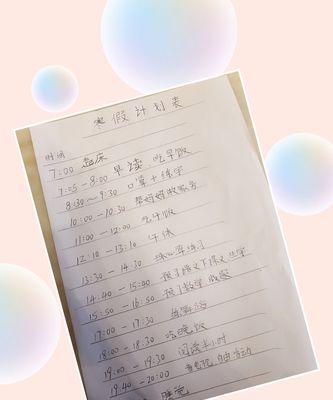 寒假计划表
时间
7:00 起床
7:05-8:00 早读、吃早饭
8:30~9:30 口算+练字
10:00-10:30 帮妈妈做家务
11:00-12:00 吃午饭
12:10-13:10 午休
13:30-14:30 练习
14:40-15:40 预习语文下
15:50-16:50 预习数学
17:00-17:30
18:00-18:30 吃晚饭
19:00-19:30 阅读半小时
19:40-20:00 自由活动
睡觉